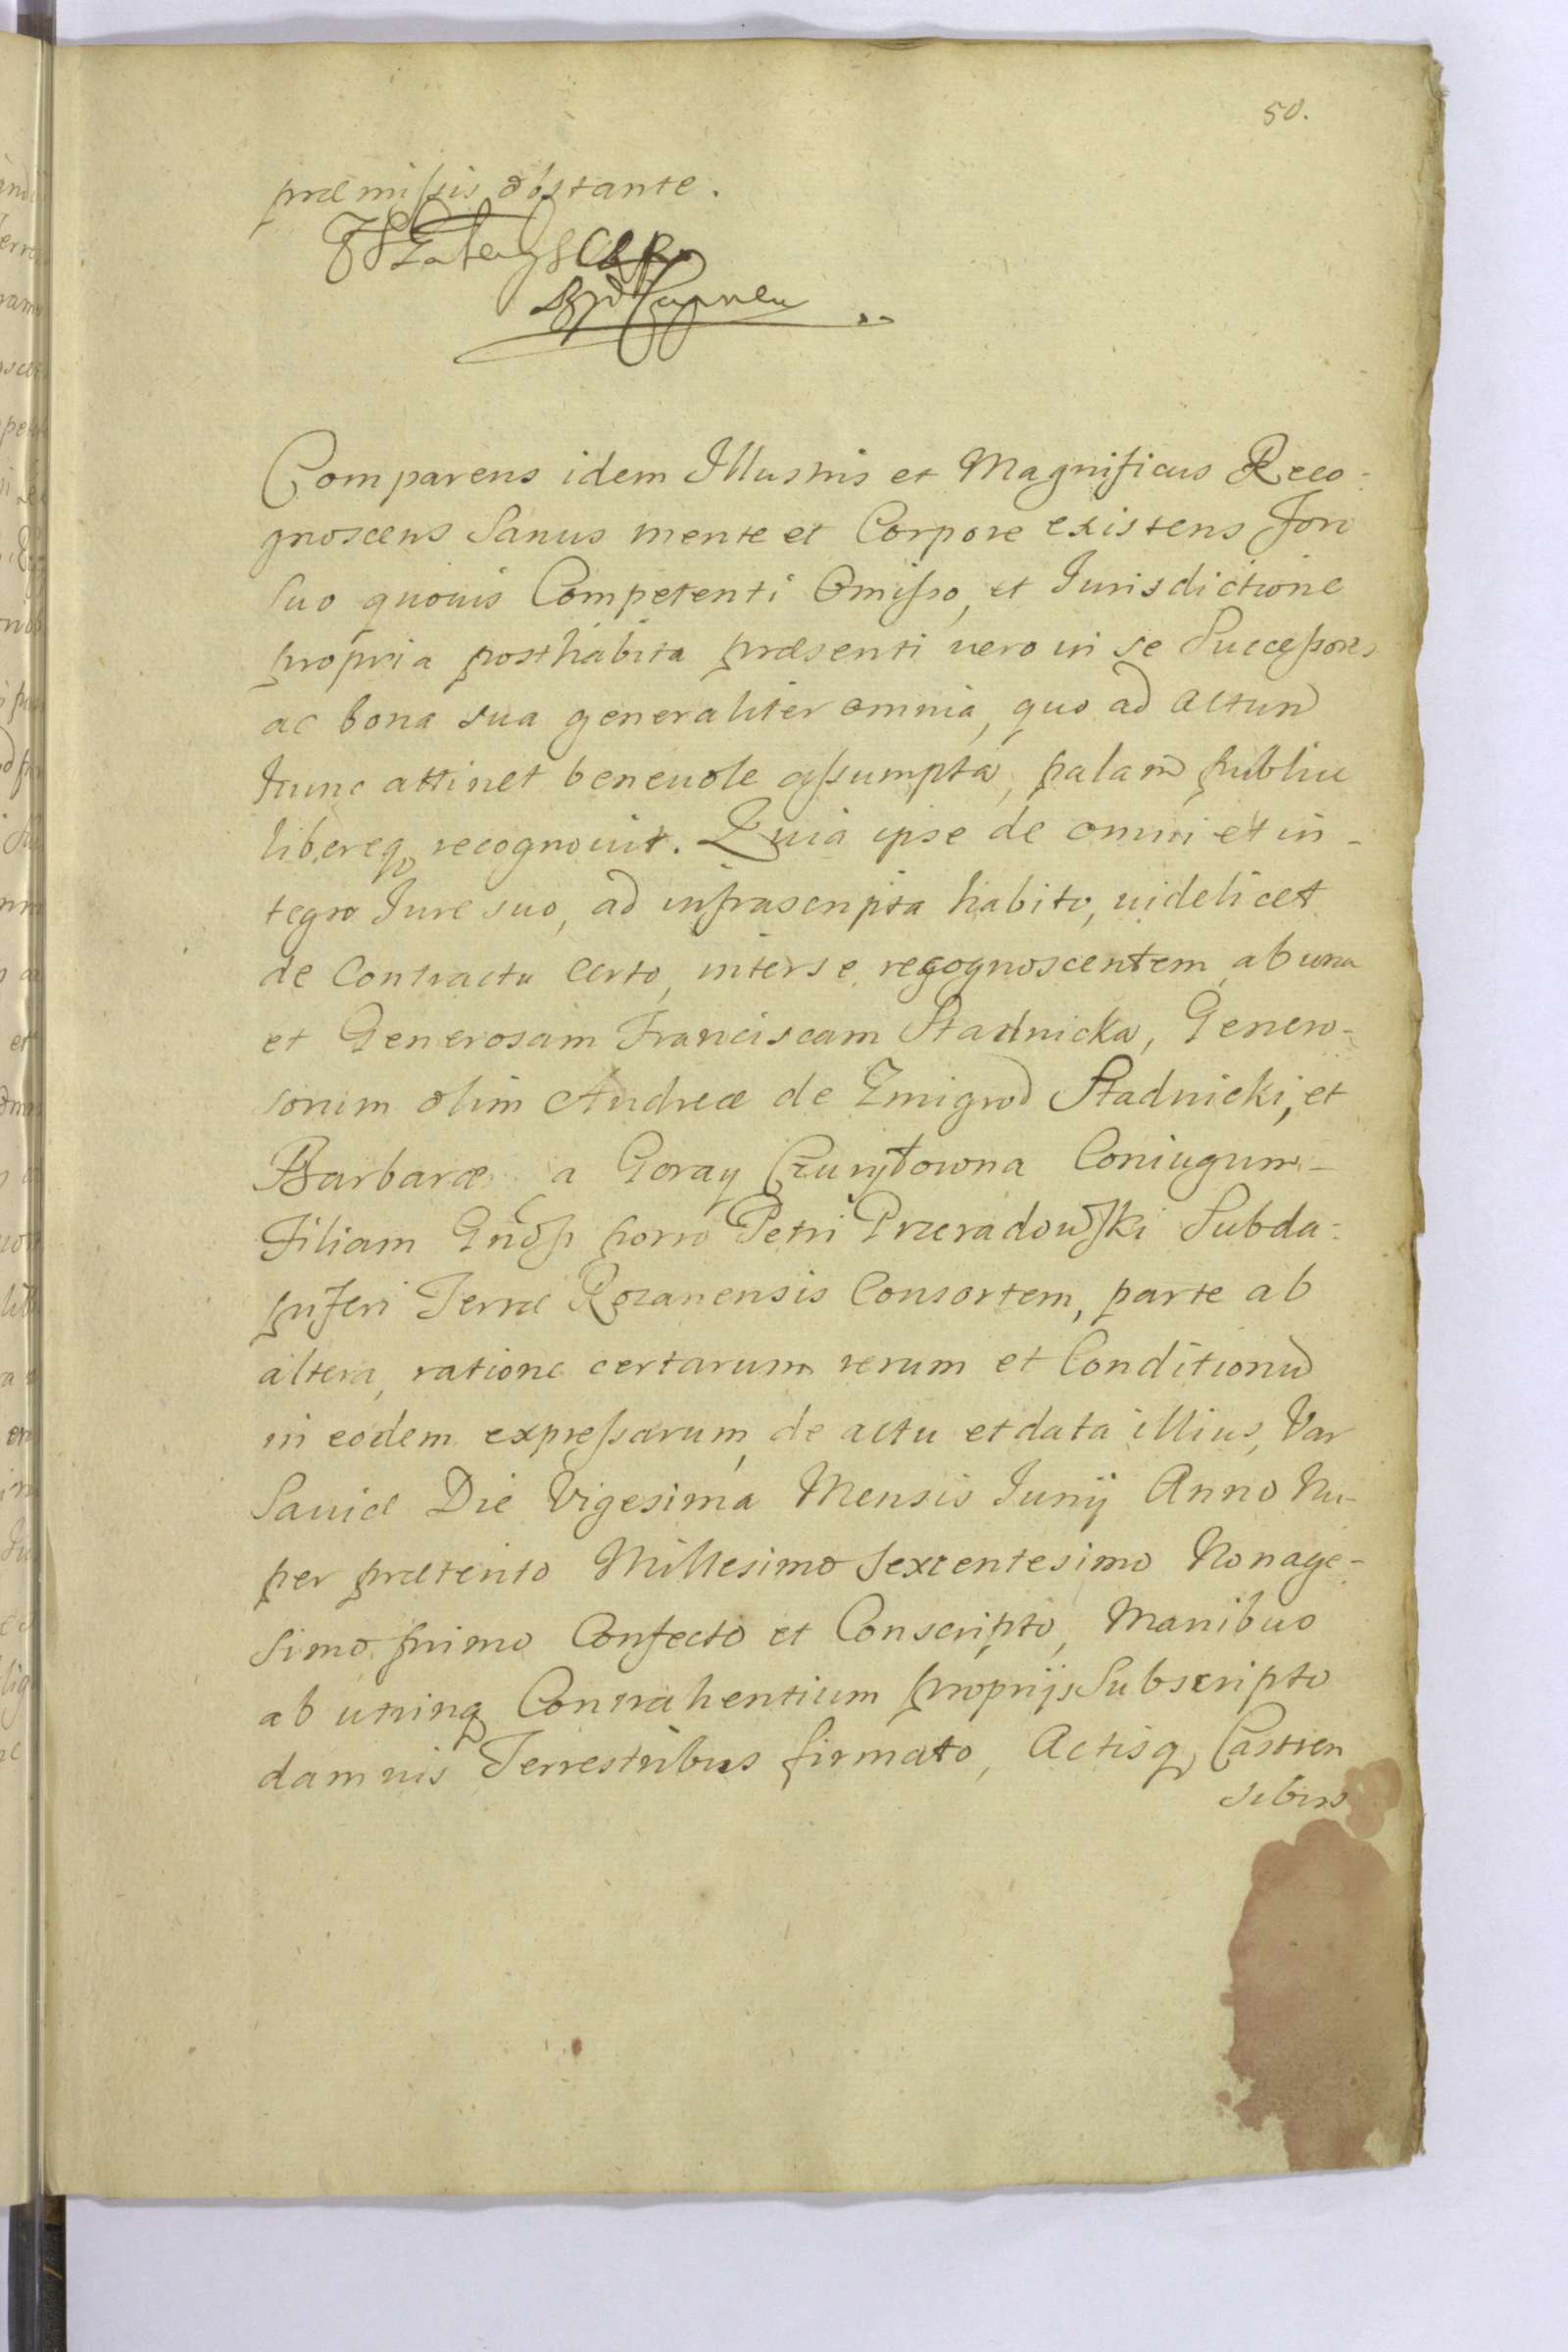 50.
præmissis obstante.
Comparens idem Illustris et Magnificus Reco-
gnoscens Sanus mente et Corpore existens Foro
Suo quouis Competenti Omisso, et Iurisdictione
propria posthabita præsenti uero in se Successores
ac bona sua generaliter omnia, quo ad actum
hunc attinet beneuole assumpta, palam publice
libereq recognouit. Quia ipse de omni et in-
tegro Iure suo, ad infrascripta habito, uidelicet
de Contractu Certo, inter se recognoscentem ab una
et Generosam Franciscam Stadnicka, Genero-
sorum olim Andreæ de Zmigrod Stadnicki, et
Barbaræ a Goray Czuryłowna Coniugum-
Filiam Gndsi porro Petri Przeradowski Subda-
piferi Terræ Rozanensis Consortem, parte ab
altera, ratione certarum rerum et Conditionu
in eodem expressarum, de actu et data illius, Var
Sauiæ Die Vigesima Mensis Iunij Anno Nu-
per præterito Millesimo Sexcentesimo Nonage-
simo primo Confecto et Conscripto, Manibus
ab utrinq Contrahentium proprijs Subscripto
damnis Terrestribus firmato, Actisq Castren
sibus